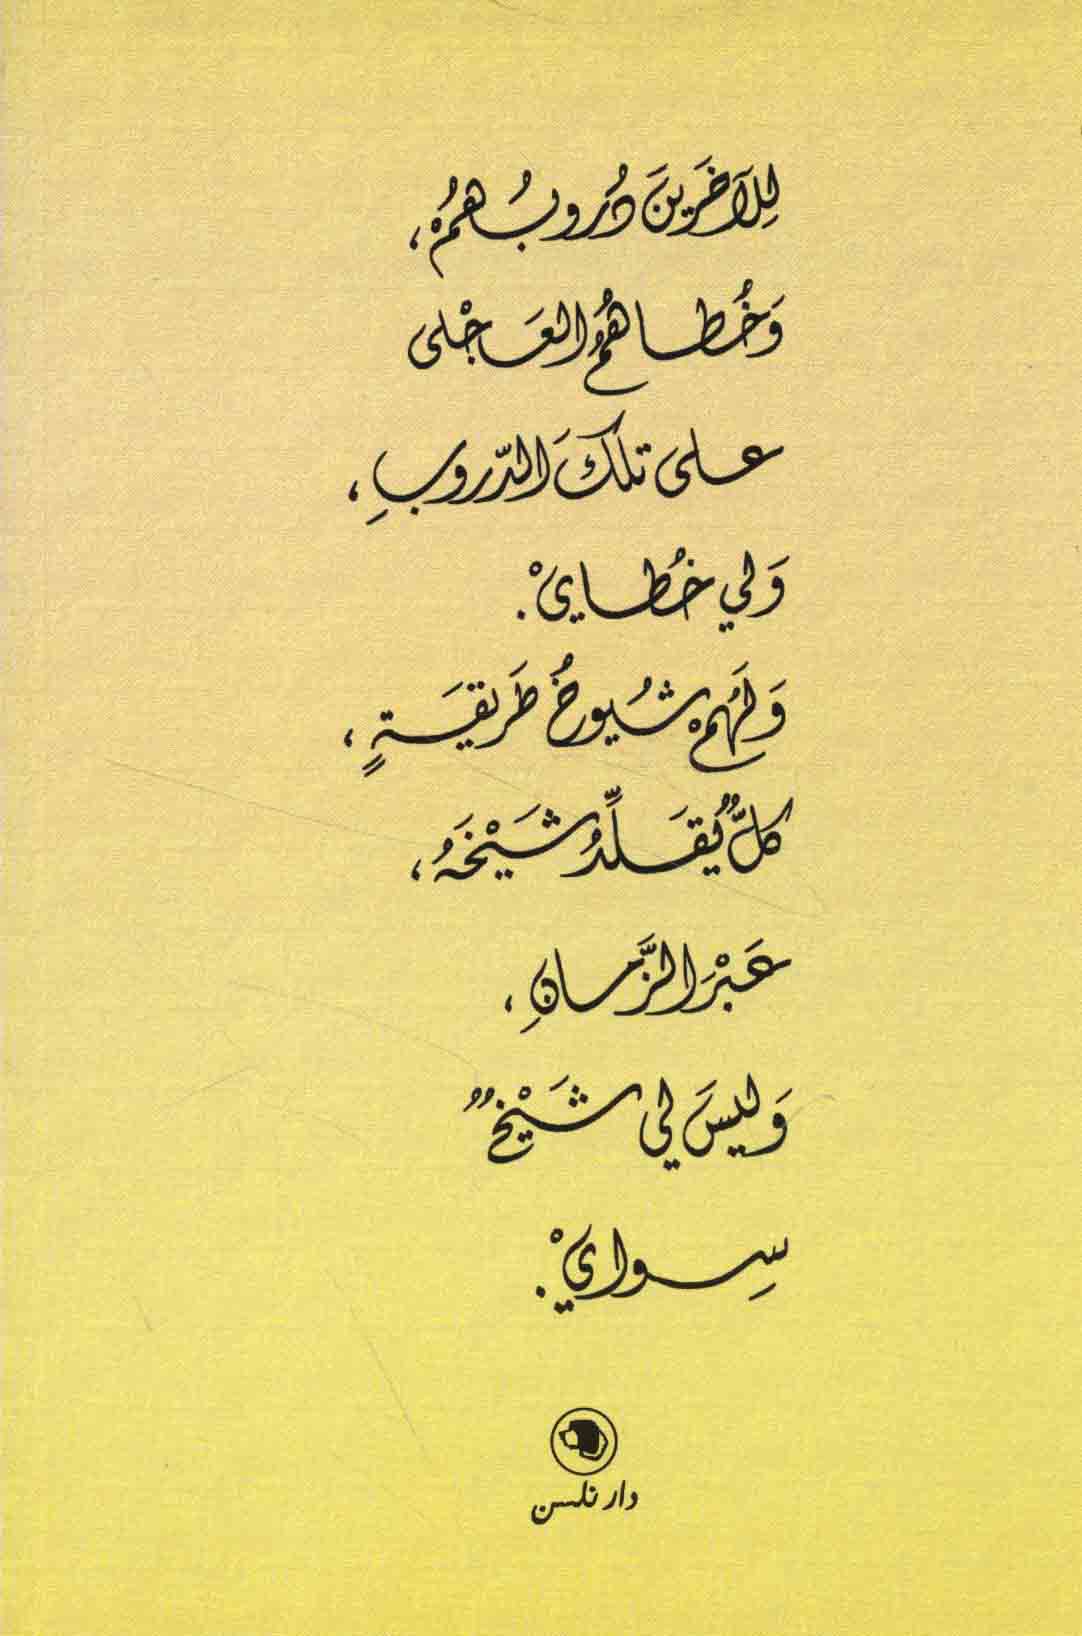 لِلآخَرِينَ دُرُوبُهُمْ،
وَخُطاهُمُ العَجْلى
على تلكَ الدّروبِ،
وَلي خُطايْ.
وَلَهُمْ شُيوخُ طَريقَةٍ،
كلٌّ يُقَلِّدُ شَيْخَهُ،
عَبْرَ الزَّمانِ،
وَليسَ لي شَيْخٌ
سِوايْ.
دار نلسن